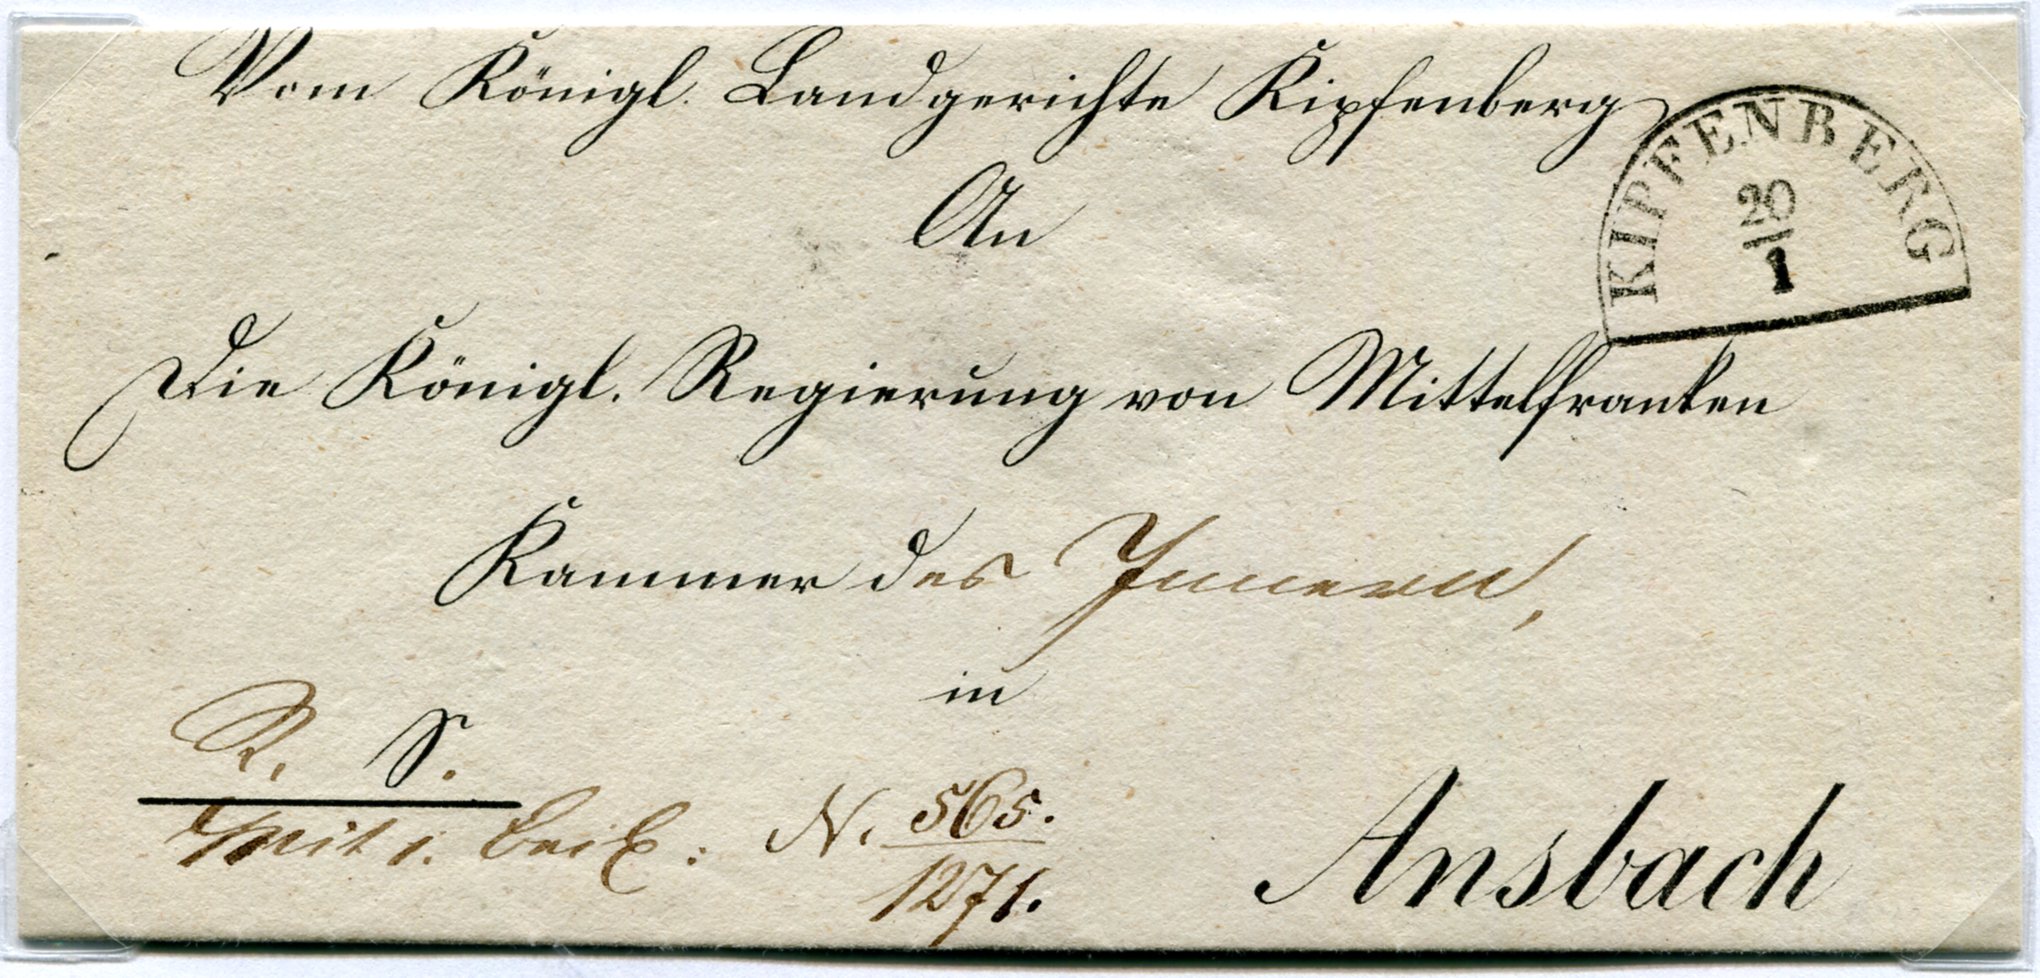 Vom Königl. Landgerichte Kipfenberg
KIPFENBERG
20
1
An
Die Königl. Regierung von Mittelfranken
Kammer des Innern,
in
R. S.
Mit 1. Beil: N. 565.
1271.
Ansbach